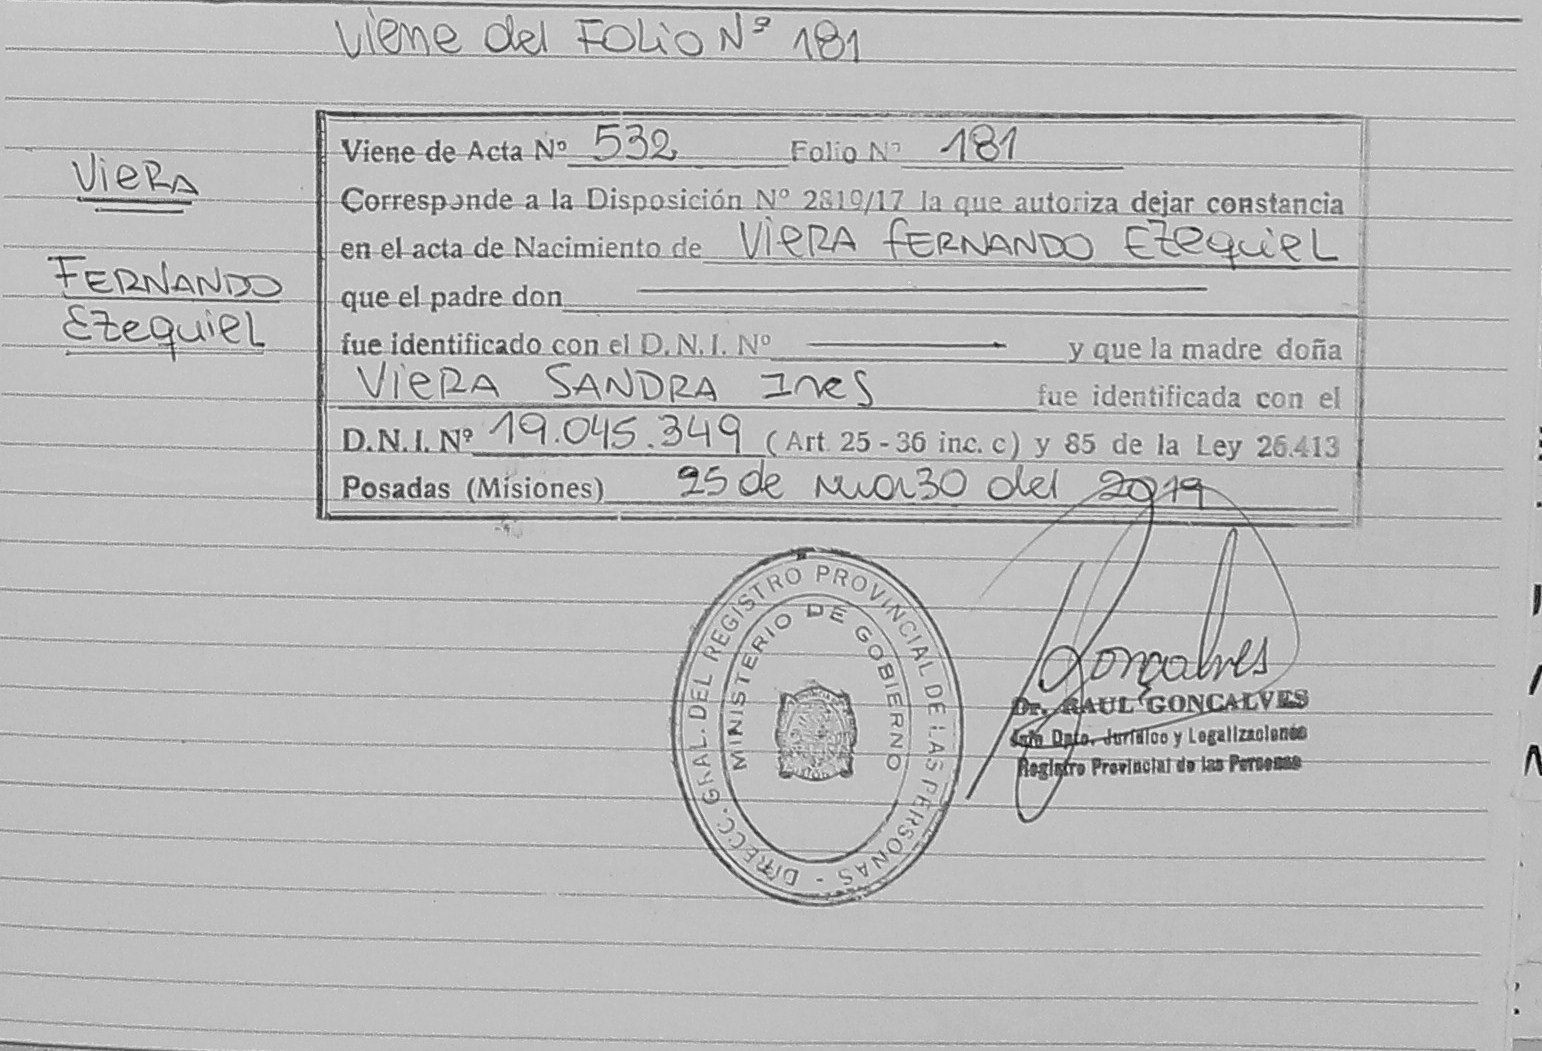 Viene del Folio Nº 181
Viene de Acta Nº 532 Folio Nº 181
VieRA
Corresponde a la Disposición Nº 2819/17 la que autoriza dejar constancia
en el acta de Nacimiento de VieRA FERNANDO EzequieL
FERNANDO
EzequieL
que el padre don
fue identificado con el D. N. I. Nº y que la madre doña
VieRA SANDRA Ines fue identificada con el
D.N.I. Nº 19.045.349 (Art. 25 - 36 inc. c) y 85 de la Ley 26.413
Posadas (Misiones) 25 de marzo del 2019
DIRECC. GRAL. DEL REGISTRO PROVINCIAL DE LAS PERSONAS -
MINISTERIO DE GOBIERNO
Gonçalves
Dr. RAUL GONCALVES
Jefe Dpto. Jurídico y Legalizaciones
Registro Provincial de las Personas